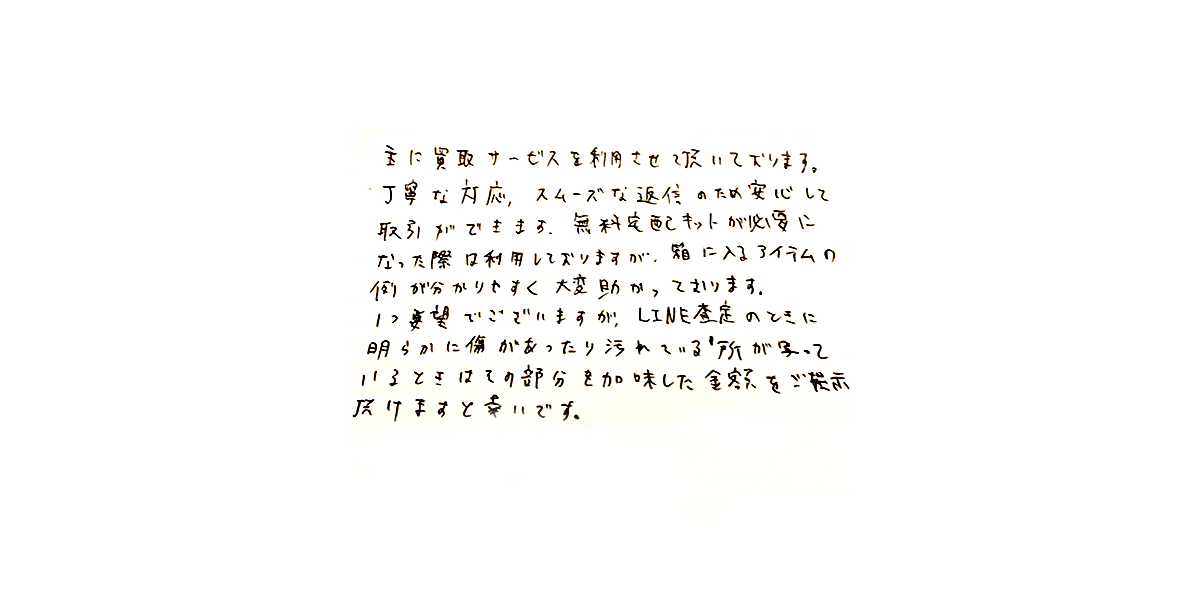 主に買取サービスを利用させて頂いております。
丁寧な対応, スムーズな返信のため安心して
取引ができます. 無料宅配キットが必要に
なった際は利用しておりますが, 箱に入るアイテムの
例が分かりやすく大変助かっております.
1つ要望でございますが, LINE査定のときに
明らかに傷があったり汚れている所が写って
いるときはその部分を加味した金額をご提示
頂けますと幸いです。